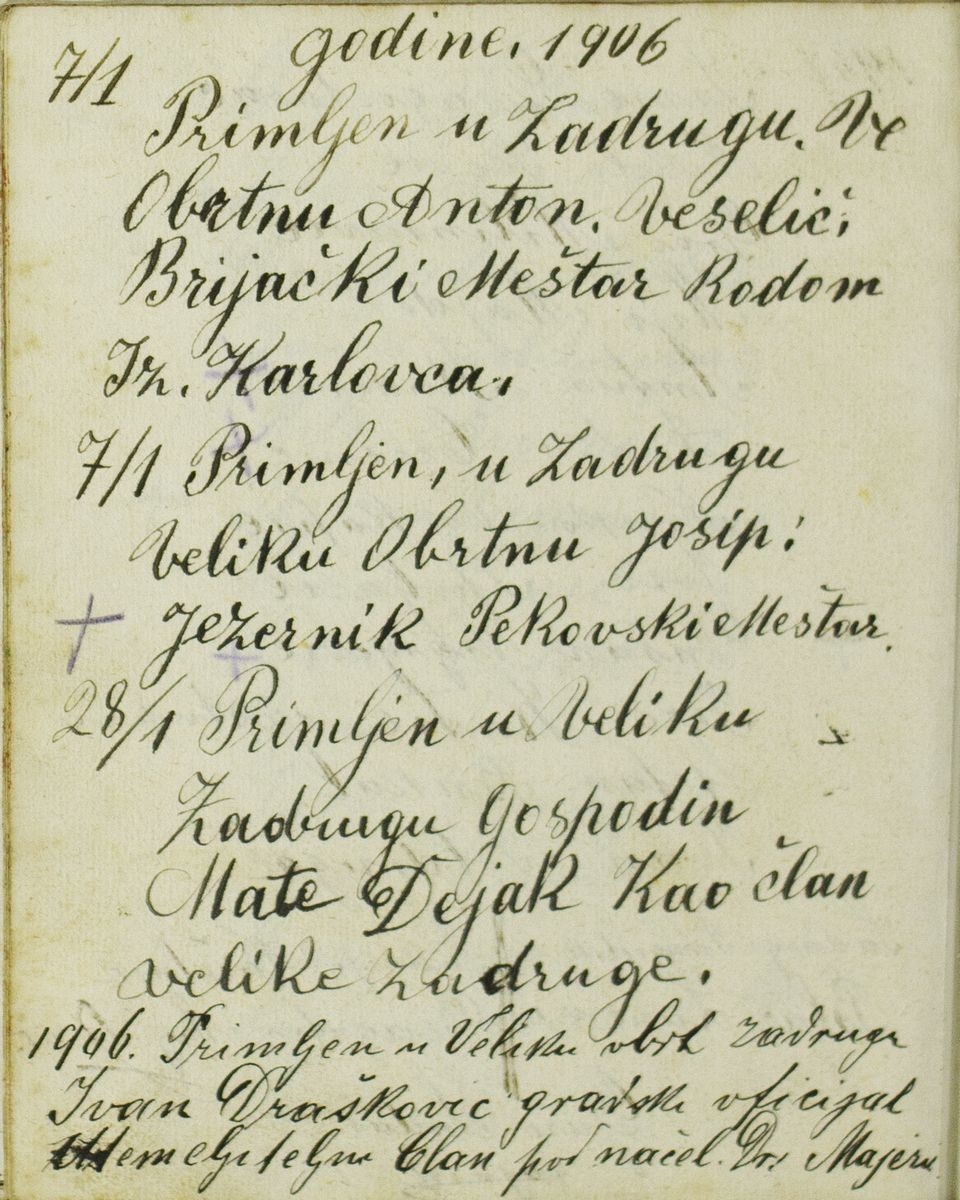 godine. 1906
7/1
Primljen u Zadrugu. Ve
Obrtnu Anton. Veselić,
Brijački Meštar Rodom
Iz. Karlovca.
7/1 Primljen, u Zadrugu
Veliku Obrtnu Josip:
Jezernik Pekovski Meštar.
28/1 Primljen u Veliku
Zadrugu Gospodin
Mate Dejak Kao član
velike zadruge.
1906. Primljen u Veliku obrt zadrugu
Ivan Drašković gradski oficijal
utemeljiteljni Clan pod načel. Dr. Majeru